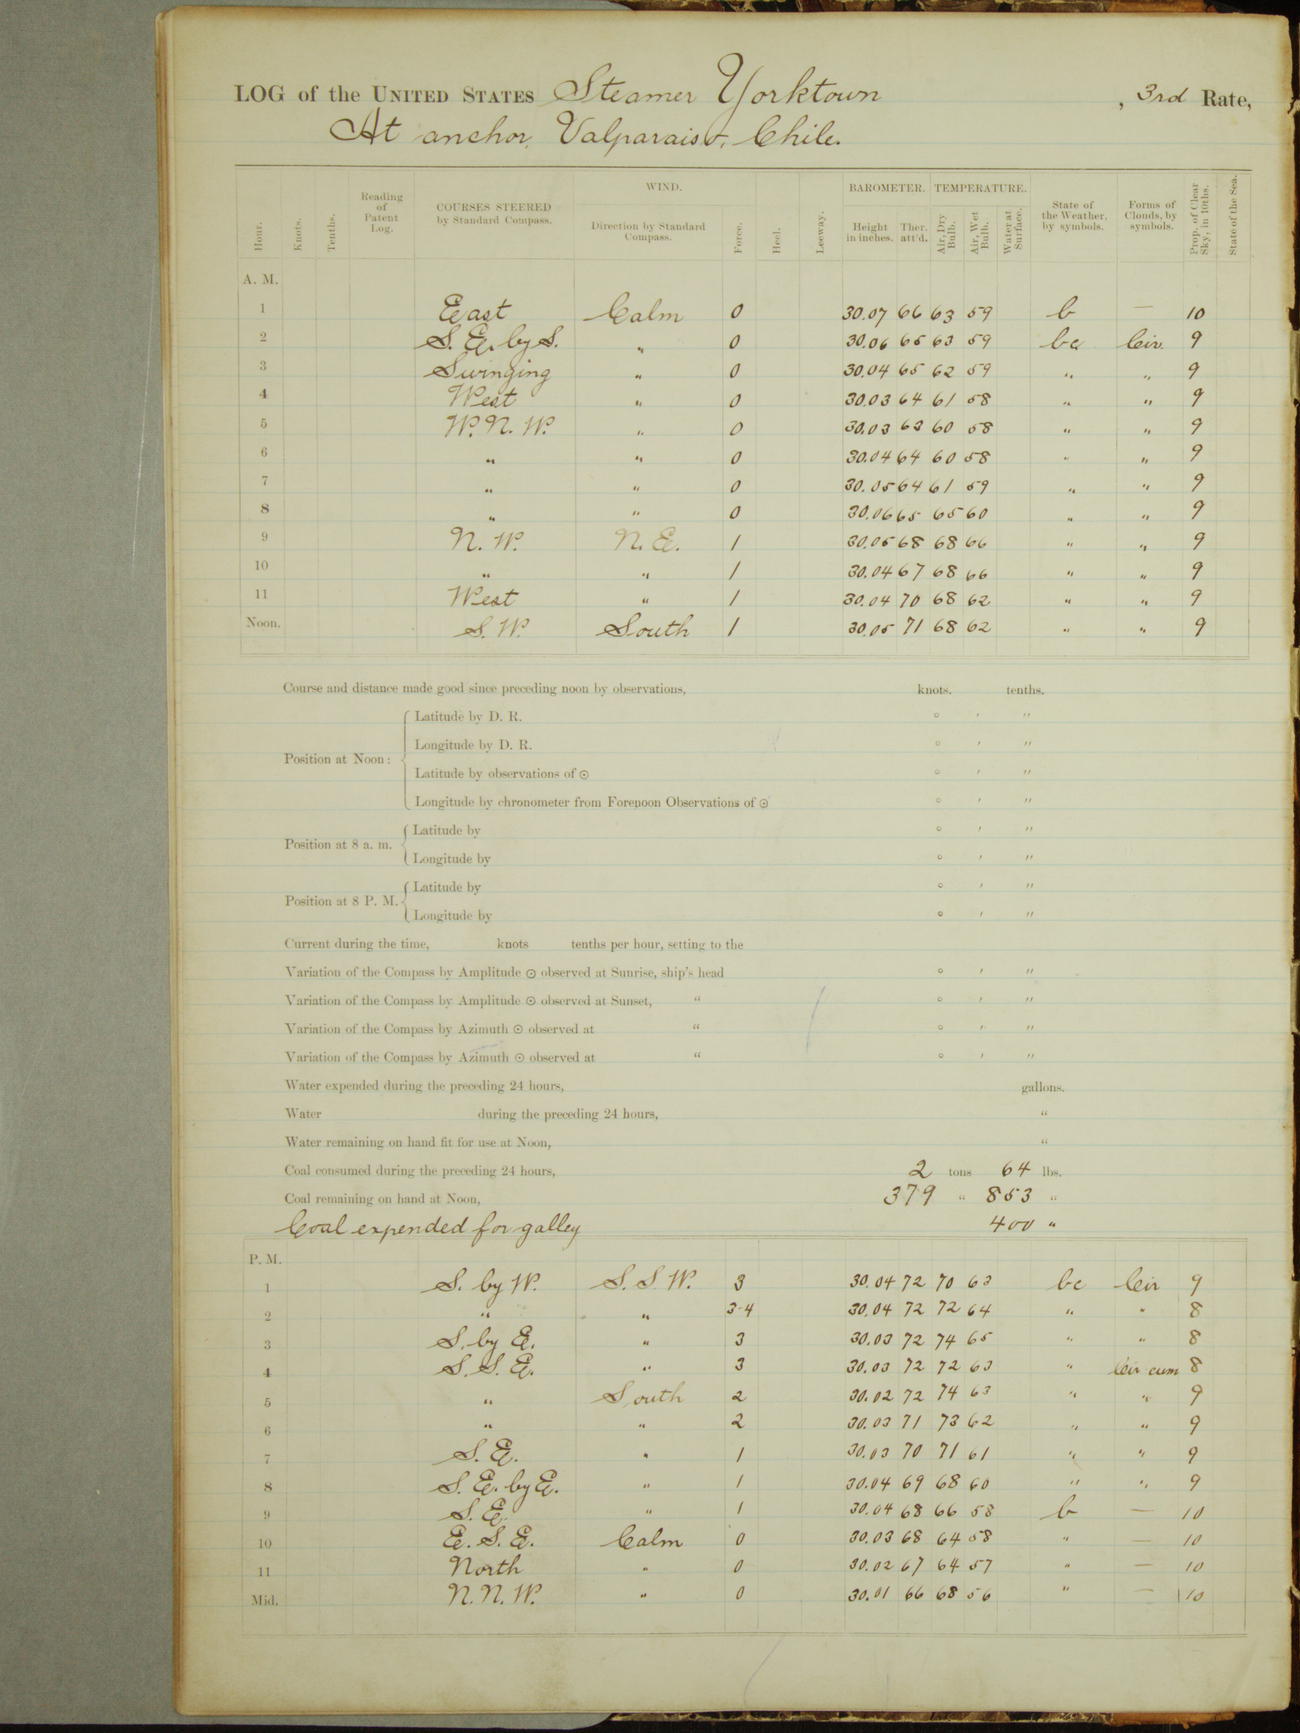 LOG of the UNITED STATES Steamer Yorktown , 3rd Rate,
At anchor, Valparaiso, Chile.
WIND. BAROMETER. TEMPERATURE.
Hour. Knots. Tenths. Reading of Patent Log. COURSES STEERED by Standard Compass. Direction by Standard Compass. Force. Heel. Leeway. Height in inches. Ther. att'd. Air, Dry Bulb. Air, Wet Bulb. Water at Surface. State of the Weather, by symbols. Forms of Clouds, by symbols. Prop. of Clear Sky, in 10ths. State of the Sea.
A. M.
1 East Calm 0 30.07 66 63 59 b — 10
2 S. E. by S. " 0 30.06 65 63 59 bc Cir. 9
3 Swinging " 0 30.04 65 62 59 " " 9
4 West " 0 30.03 64 61 58 " " 9
5 W. N. W. " 0 30.03 63 60 58 " " 9
6 " " 0 30.04 64 60 58 " " 9
7 " " 0 30.05 64 61 59 " " 9
8 " " 0 30.06 65 65 60 " " 9
9 N. W. N. E. 1 30.05 68 68 66 " " 9
10 " " 1 30.04 67 68 66 " " 9
11 West " 1 30.04 70 68 62 " " 9
Noon. S. W. South 1 30.05 71 68 62 " " 9
Course and distance made good since preceding noon by observations, knots. tenths.
Position at Noon:
Latitude by D. R. ° ′ ″
Longitude by D. R. ° ′ ″
Latitude by observations of ⊙ ° ′ ″
Longitude by chronometer from Forenoon Observations of ⊙ ° ′ ″
Position at 8 a. m.
Latitude by ° ′ ″
Longitude by ° ′ ″
Position at 8 P. M.
Latitude by ° ′ ″
Longitude by ° ′ ″
Current during the time, knots tenths per hour, setting to the
Variation of the Compass by Amplitude ⊙ observed at Sunrise, ship's head ° ′ ″
Variation of the Compass by Amplitude ⊙ observed at Sunset, " ° ′ ″
Variation of the Compass by Azimuth ⊙ observed at " ° ′ ″
Variation of the Compass by Azimuth ⊙ observed at " ° ′ ″
Water expended during the preceding 24 hours, gallons.
Water during the preceding 24 hours, "
Water remaining on hand fit for use at Noon, "
Coal consumed during the preceding 24 hours, 2 tons 64 lbs.
Coal remaining on hand at Noon, 379 " 853 "
Coal expended for galley 400 "
P. M.
1 S. by W. S. S. W. 3 30.04 72 70 63 bc Cir 9
2 " " 3-4 30.04 72 72 64 " " 8
3 S. by E. " 3 30.03 72 74 65 " " 8
4 S. S. E. " 3 30.03 72 72 63 " Cir cum 8
5 " South 2 30.02 72 74 63 " " 9
6 " " 2 30.03 71 73 62 " " 9
7 S. E. " 1 30.03 70 71 61 " " 9
8 S. E. by E. " 1 30.04 69 68 60 " " 9
9 S. E. " 1 30.04 68 66 58 b — 10
10 E. S. E. Calm 0 30.03 68 64 58 " — 10
11 North " 0 30.02 67 64 57 " — 10
Mid. N. N. W. " 0 30.01 66 68 56 " — 10